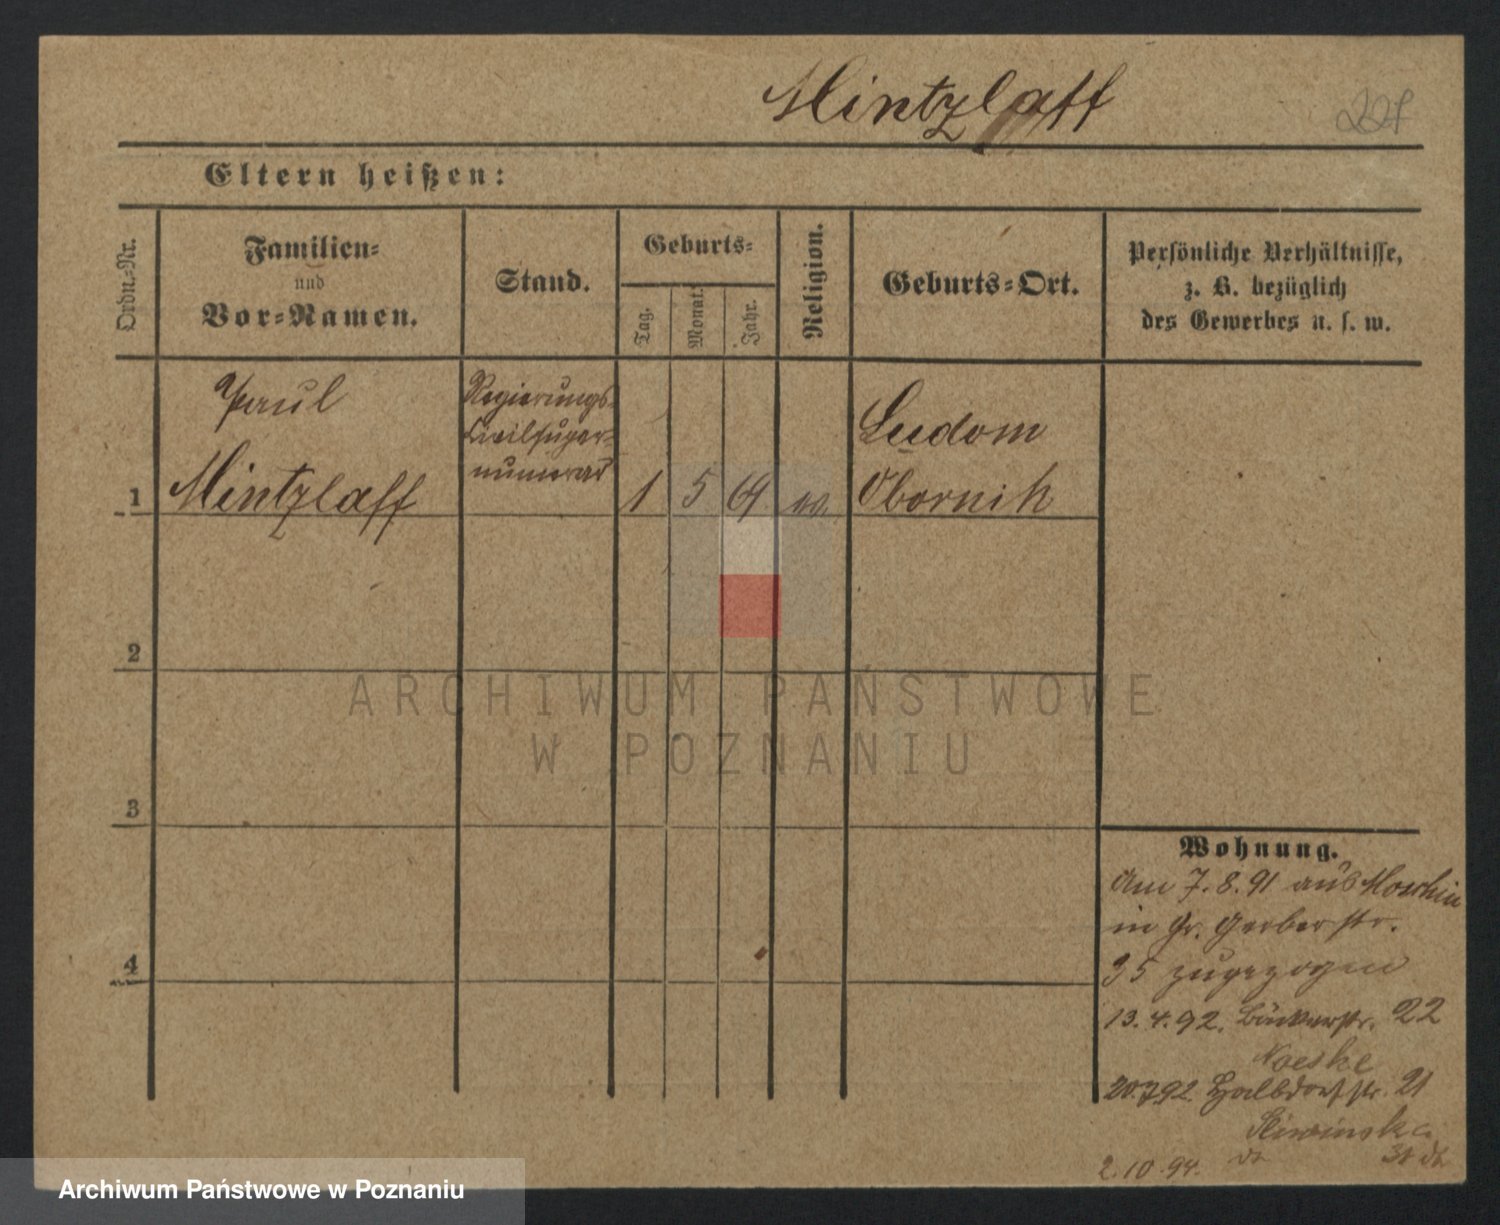 Mintzlaff
Eltern heißen:
Ordn.-Nr.
Familien-
und
Vor-Namen.
Stand.
Geburts-
Tag.
Monat.
Jahr.
Religion.
Geburts-Ort.
Persönliche Verhältnisse,
z. B. bezüglich
des Gewerbes u. s. w.
Paul
Mintzlaff
Regierungs-
Civilsuper-
numerar
1
1 5 64
Ludom
Obornik
2
3
4
ARCHIWUM PAŃSTWOWE
W POZNANIU
Wohnung.
Am 7.8.91 aus Moschin
in Gr. Gerberstr.
35 zugezogen
13.4.92. Bäckerstr. 22
Noeske
20.7.92. Halbdorfstr. 21
2.10.94.
Archiwum Państwowe w Poznaniu